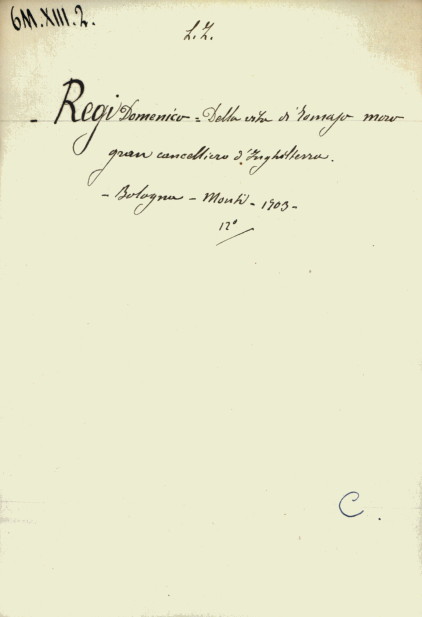 6M.XIII.2.
L.Z.
- Regi Domenico = Della vita di Tomaso moro
gran cancelliero d'Inghilterra.
- Bologna - Monti - 1703 -
12°
C.